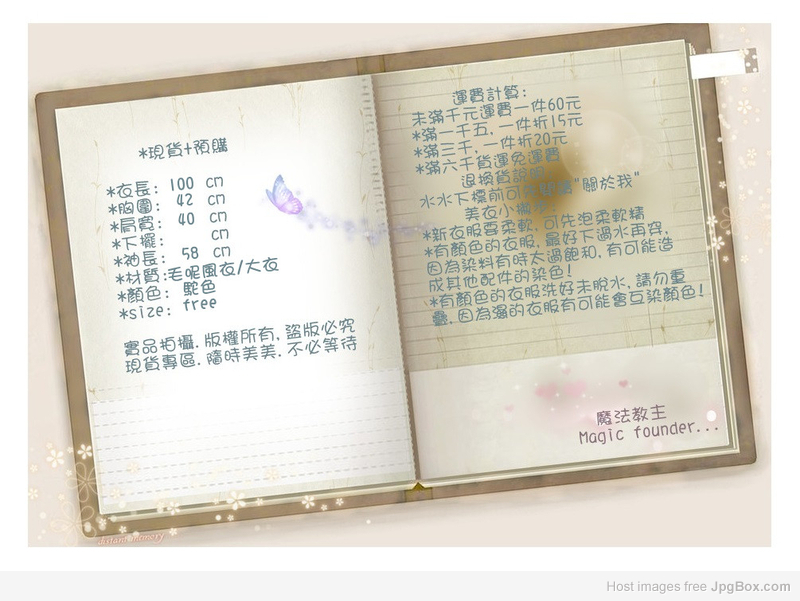 *現貨+預購
*衣長: 100 cm
*胸圍: 42 cm
*肩寬: 40 cm
*下擺: cm
*袖長: 58 cm
*材質:毛呢風衣/大衣
*顏色: 駝色
*size: free
實品拍攝.版權所有,盜版必究
現貨專區.隨時美美.不必等待
運費計算:
未滿千元運費一件60元
*滿一千五,一件折15元
*滿三千,一件折20元
*滿六千貨運免運費
退換貨說明
水水下標前可先 "關於我"
美衣小
*新衣服要柔軟,可先泡柔軟精
*有顏色的衣服,最好下過水再穿,
因為染料有時太過飽和,有可能造
成其他配件的染色!
*有顏色的衣服洗好未脫水,請勿重
疊.因為濕的衣服有可能會互染顏色!
魔法教主
Magic founder...
Instant memory
Host images free JpgBox.com